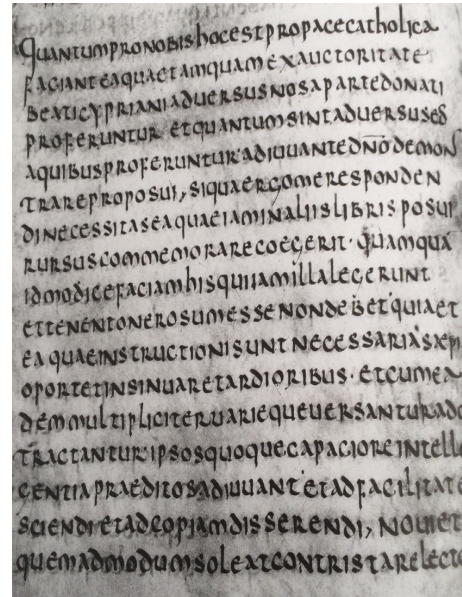 quantumpronobishocestpropacecatholica
facianteaquaetamquamexauctoritate
beaticyprianiaduersusnosapartedonati
proferuntur etquantumsintaduersuseos
aquibusproferunturadiuuantedn̄odemons
trareproposui, siquaergomeresponden
dinecessitaseaquaeiaminaliislibrisposui
rursuscommemorarecoegerit· quamquā
idmodicefaciamhisquiiamillalegerunt
ettenentonerosumessenondebet quiaet
eaquaeinstructionisuntnecessariasaepi
oportetinsinuaretardioribus· etcumea
demmultipliciteruariequeuersanturadq
tractanturipsosquoquecapacioreintelle
gentiapraeditosadiuuant etadfacilitate
sciendi etadcopiamdisserendi, nouiet
quemadmodumsoleatcontristarelecto